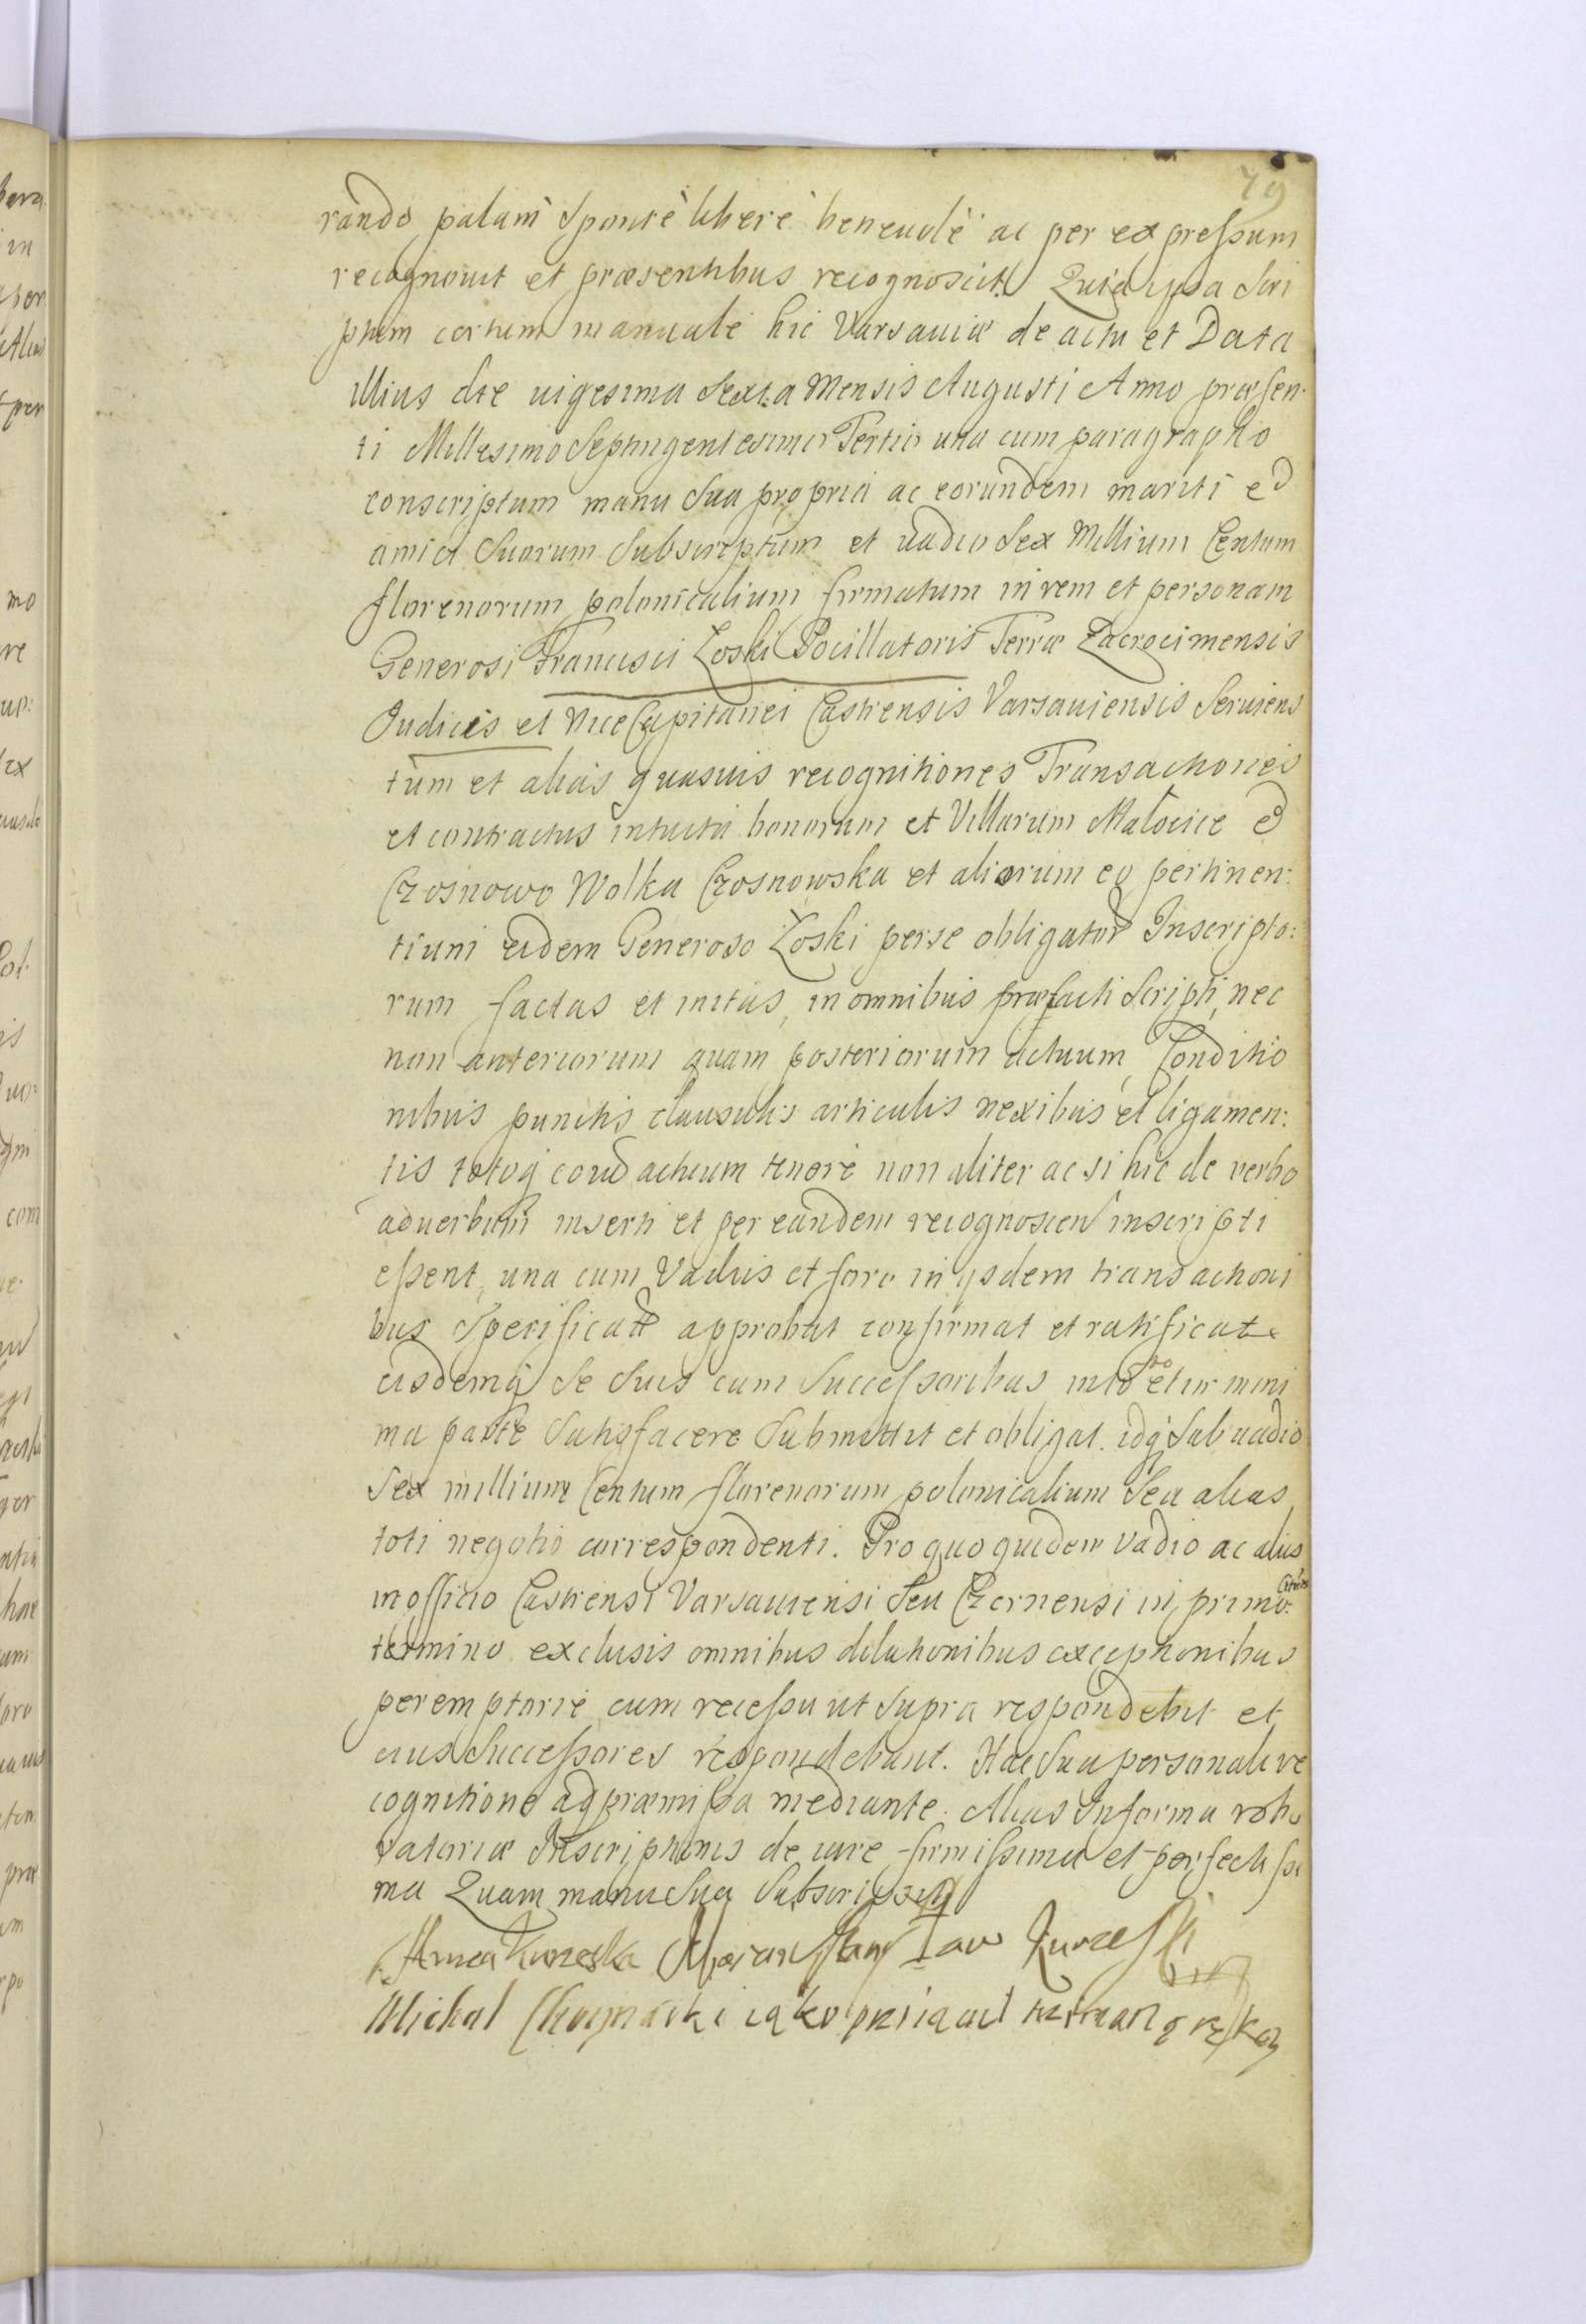 79
rando palam sponte libere beneuole ac per expressum
recognouit et præsentibus recognoscit. Quia ipsa Scri
ptum certum manuale hic Varsauiæ de actu et Data
illius die uigesima Sexta Mensis Augusti Anno præsen:
ti Millesimo Septingentesimo Tertio una cum paragrapho
conscriptum manu Sua propria ac eorundem mariti et
amici Suorum Subscriptum et uadio Sex Millium Centum
florenorum polonicalium firmatum in rem et personam
Generosi Francisci Zoski Pocillatoris Terræ Zacrocimensis
Iudicis et ViceCapitanei Castrensis Varsauiensis Seruiens
tum et alias quasuis recognitiones Transactiones
et contractus intuitu bonorum et Villarum Małocice et
Czosnowo Wolka Czosnowska et aliorum eo pertinen:
tium eidem Generoso Zoski per se obligator Inscripto:
rum factas et initas, in omnibus præfacti Scripti, nec
non anteriorum quam posteriorum actuum, Conditio
nibus punctis clausulis articulis nexibus et ligamen:
tis totoq eorud actuum tenore non aliter ac si hic de verbo
aduerbum inserti et per eandem recognoscen inscripti
essent, una cum Vadiis et foro in ysdem transactioni
bus Specificatt approbat confirmat et ratificat
eisdemq Se Suis cum Successoribus in toto et in mini
ma parte Satisfacere Submittit et obligat. idq Sub uadio
Sex millium Centum florenorum polonicalium Seu alias
toti negotio correspondenti. Pro quo quidem Vadio ac aliis
in officio Castrensi Varsauiensi Seu Czernensi in primo
termino exclusis omnibus dilationibus exceptionibus
peremptorie cum recessu ut Supra respondebit et
eius Successores respondebunt. Hac Sua personali re
cognitione ad præmissa mediante. Alias In forma robo
ratoriæ Inscriptionis de iure firmissima et perfectissi
ma Quam manu Sua Subscripsit
Michal iako przyiaciel ręką